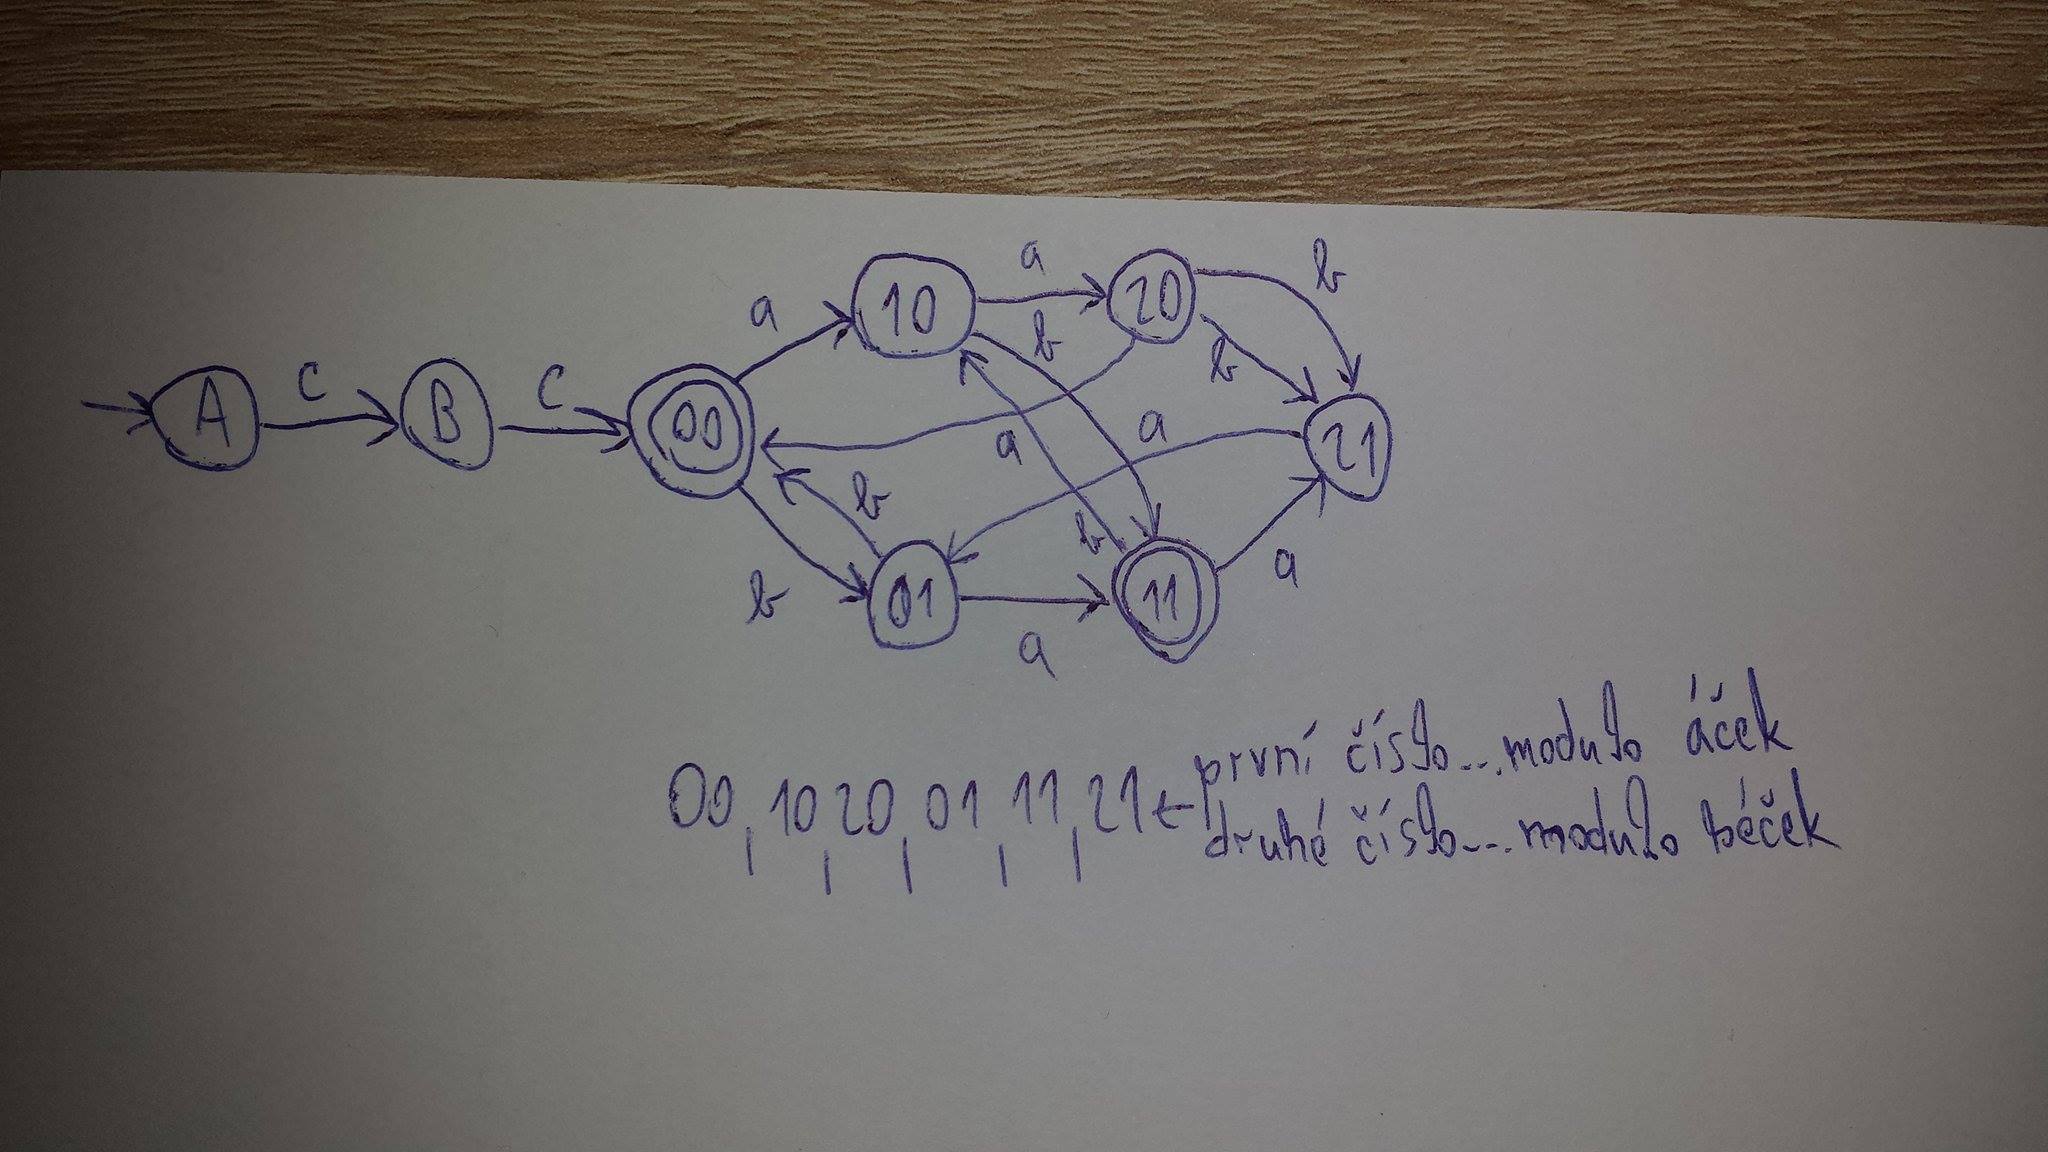 a
a
b
C
C
a
b
b
10
20
A
B
00
21
b
a
a
b
01
11
b
a
a
00, 10, 20, 01, 11, 21 ← první číslo... modulo áček
druhé číslo... modulo béček